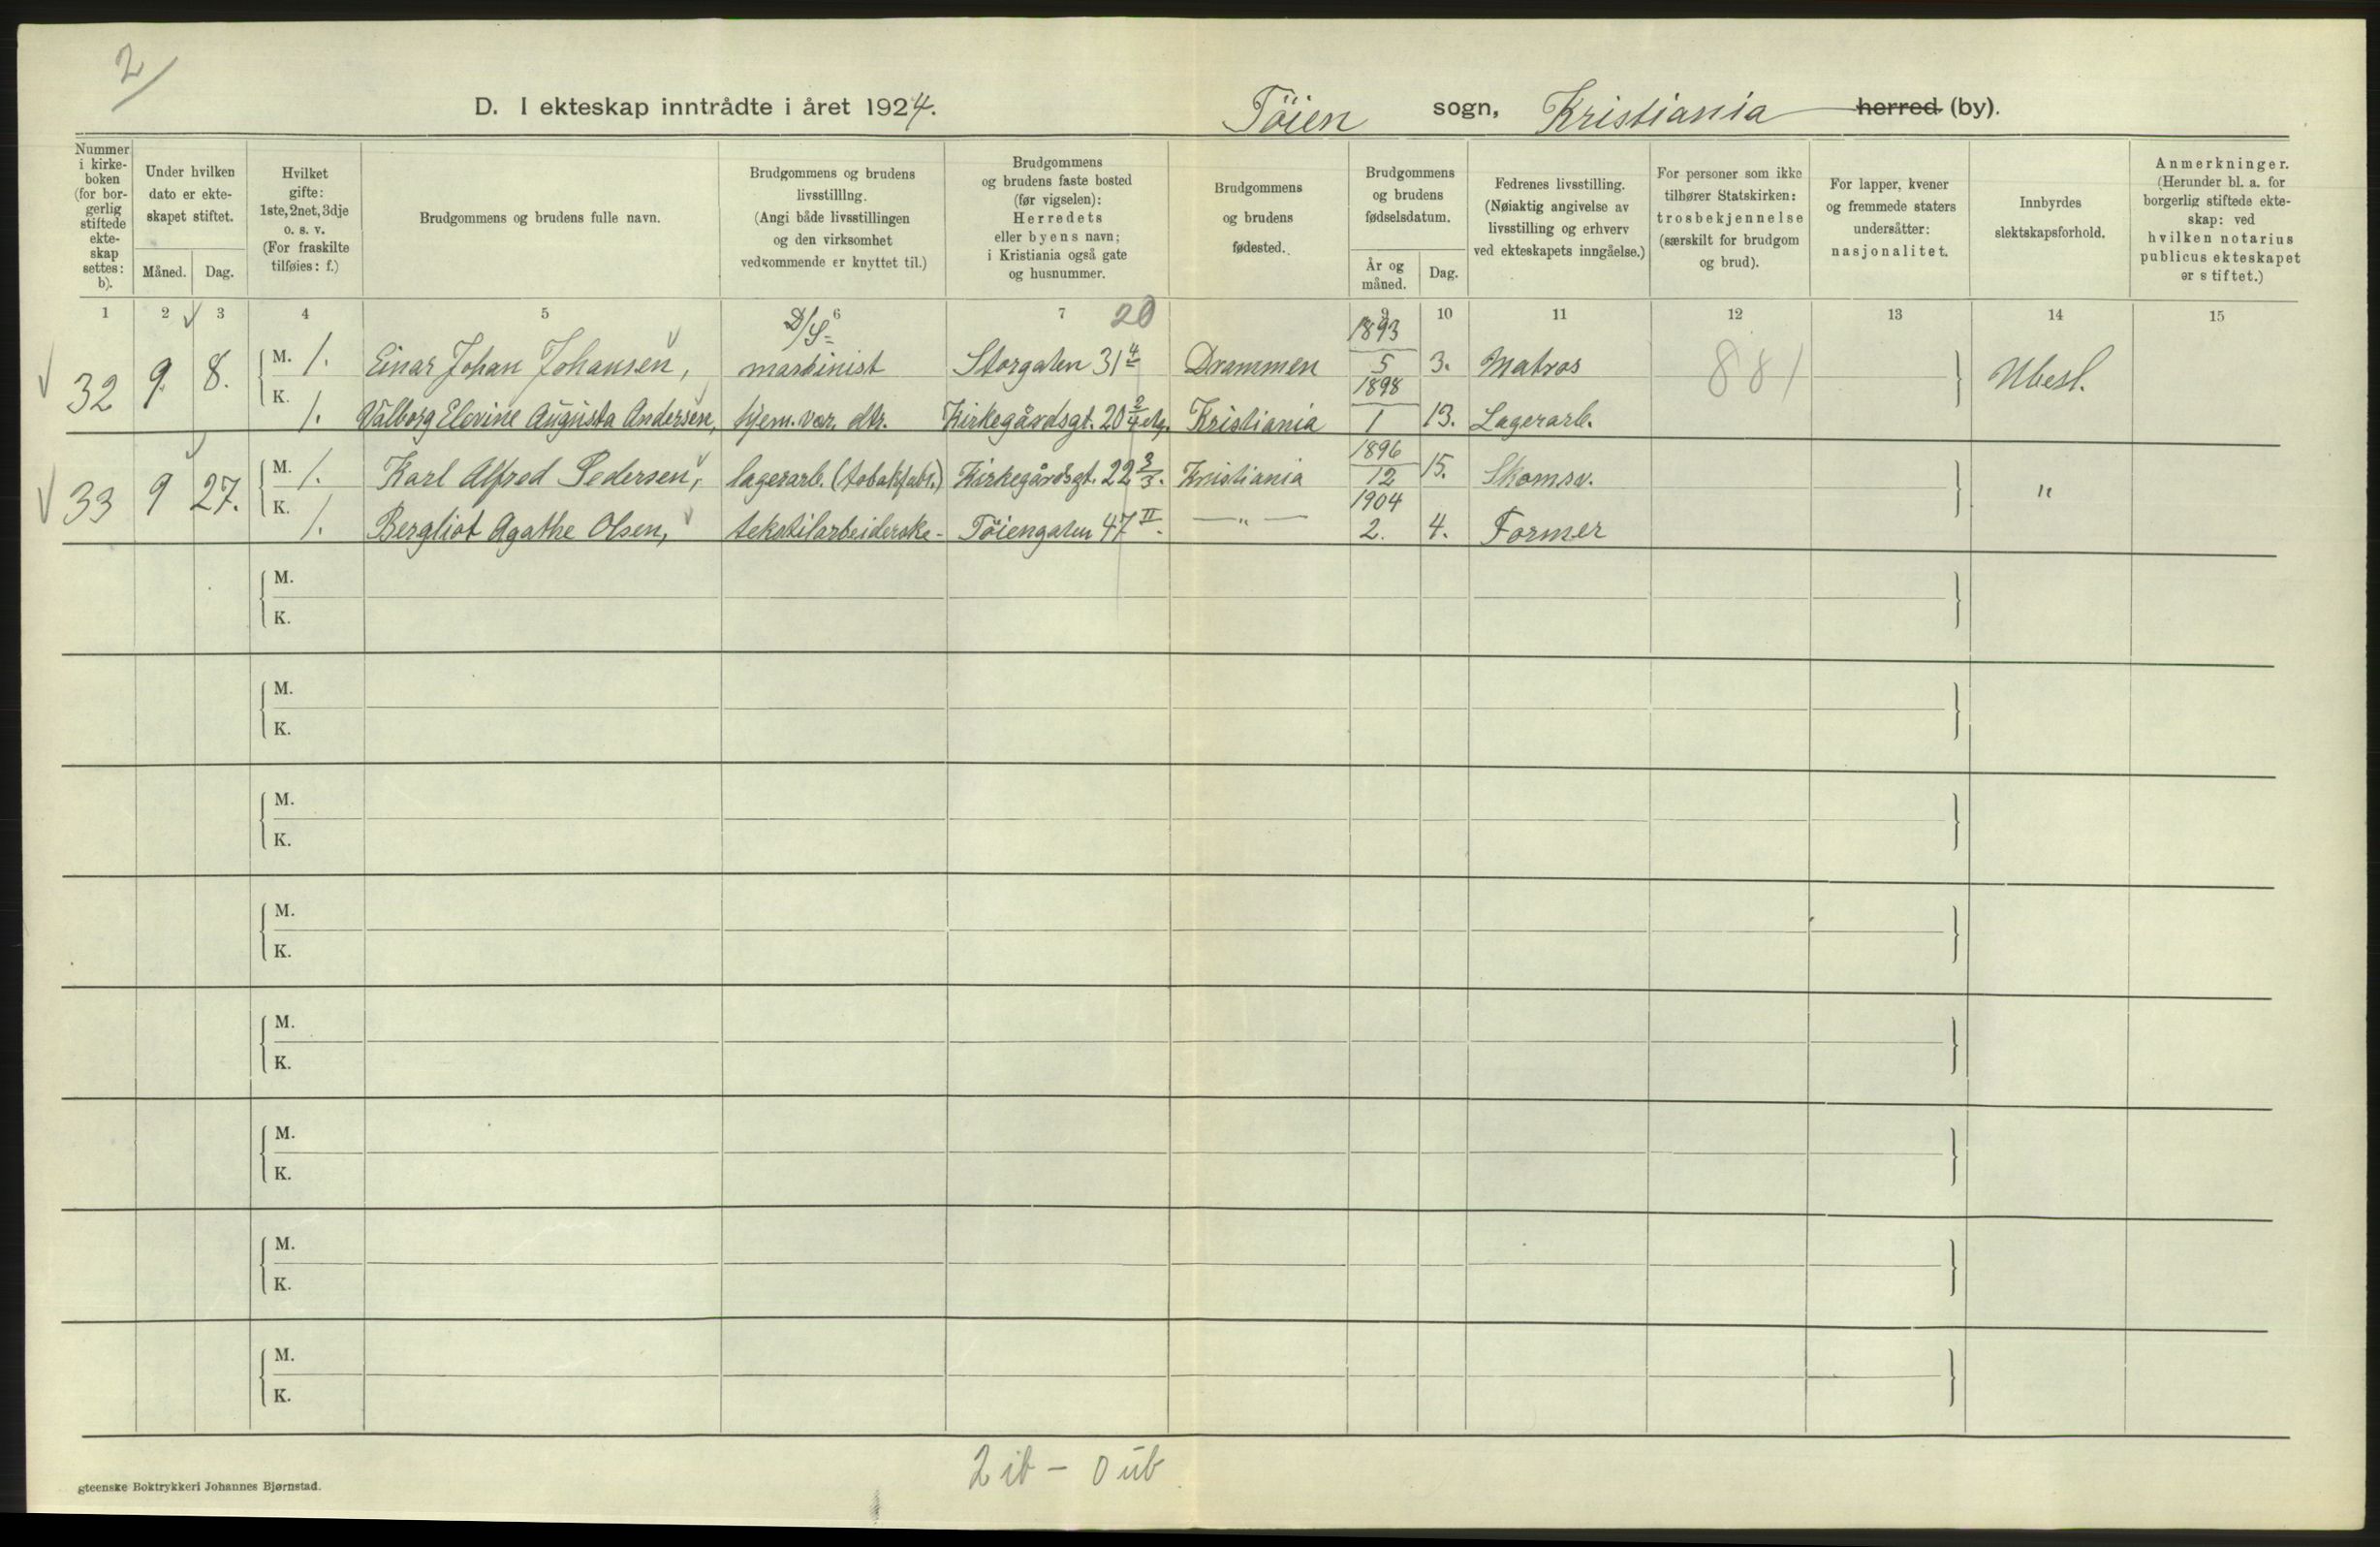 2/
D. I ekteskap inntrådte i året 1924.
Töien sogn, Kristiania herred (by).
Nummer i kirke-boken (for bor-gerlig stiftede ekte-skap settes: b).
Under hvilken dato er ekte-skapet stiftet.
Måned. Dag.
Hvilket gifte: 1ste, 2net, 3dje o. s. v. (For fraskilte tilføies: f.)
Brudgommens og brudens fulle navn.
Brudgommens og brudens livsstilling. (Angi både livsstillingen og den virksomhet vedkommende er knyttet til.)
Brudgommens og brudens faste bosted (før vigselen): Herredets eller byens navn; i Kristiania også gate og husnummer.
Brudgommens og brudens fødested.
Brudgommens og brudens fødselsdatum.
År og måned. Dag.
Fedrenes livsstilling. (Nøiaktig angivelse av livsstilling og erhverv ved ekteskapets inngåelse.)
For personer som ikke tilhører Statskirken: trosbekjennelse (særskilt for brudgom og brud).
For lapper, kvener og fremmede staters undersåtter: nasjonalitet.
Innbyrdes slektskapsforhold.
Anmerkninger. (Herunder bl. a. for borgerlig stiftede ekte-skap: ved hvilken notarius publicus ekteskapet er stiftet.)
1 2 3 4 5 6 7 20 9 10 11 12 13 14 15
32 9. 8. M. 1. Einar Johan Johansen, D/S- maskinist Storgaten 31 4 Drammen 1893 5 3. Matros 881 Ubesl.
K. 1. Valborg Elevine Augusta Andersen, hjem. vær. dtr. Kirkegårdsgt. 20 2/4 etg. Kristiania 1898 1 13. Lagerarb.
33 9 27. M. 1. Karl Alfred Pedersen, lagerarb. (tobakfabr.) Kirkegårdsgt. 22 3/3. Kristiania 1896 12 15. Skomsv. "
K. 1. Bergliot Agathe Olsen, tekstilarbeiderske - Töiengaten 47 II. — " — 1904 2. 4. Former
M.
K.
M.
K.
M.
K.
M.
K.
M.
K.
M.
K.
M.
K.
M.
K.
2 ib - 0 ub
gteenske Boktrykkeri Johannes Bjørnstad.